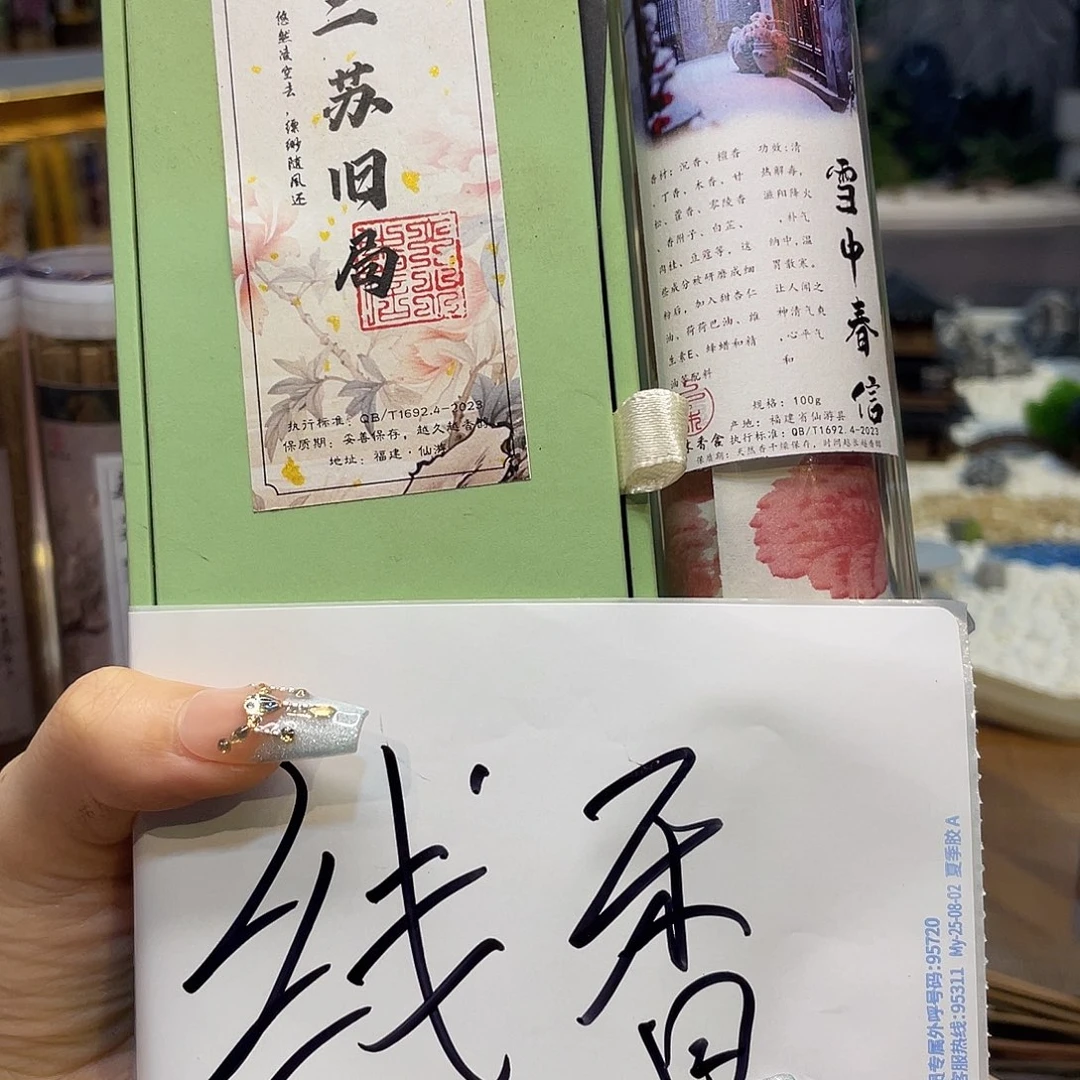 悠然凌空去，缥缈随风还
苏旧局
执行标准：QB/T1692.4-2023
保质期：妥善保存，越久越香醇
地址：福建·仙游
雪中春信
香材：沉香、檀香
、丁香、木香、甘
松、藿香、零陵香
、香附子、白芷、
肉桂、豆蔻等，这
些成分被研磨成细
粉后，加入甜杏仁
油、荷荷巴油、维
生素E、蜂蜡和精
油等配料
功效：清
热解毒，
滋阴降火
，补气
纳中，温
胃散寒。
让人闻之
神清气爽
，心平气
和
规格：100g
产地：福建省仙游县
执行标准：QB/T1692.4-2023
保质期：天然香干燥保存，时间越长越香醇
线香
专属外呼号码:95720
客服热线:95311 My-25-08-02 夏季胶A